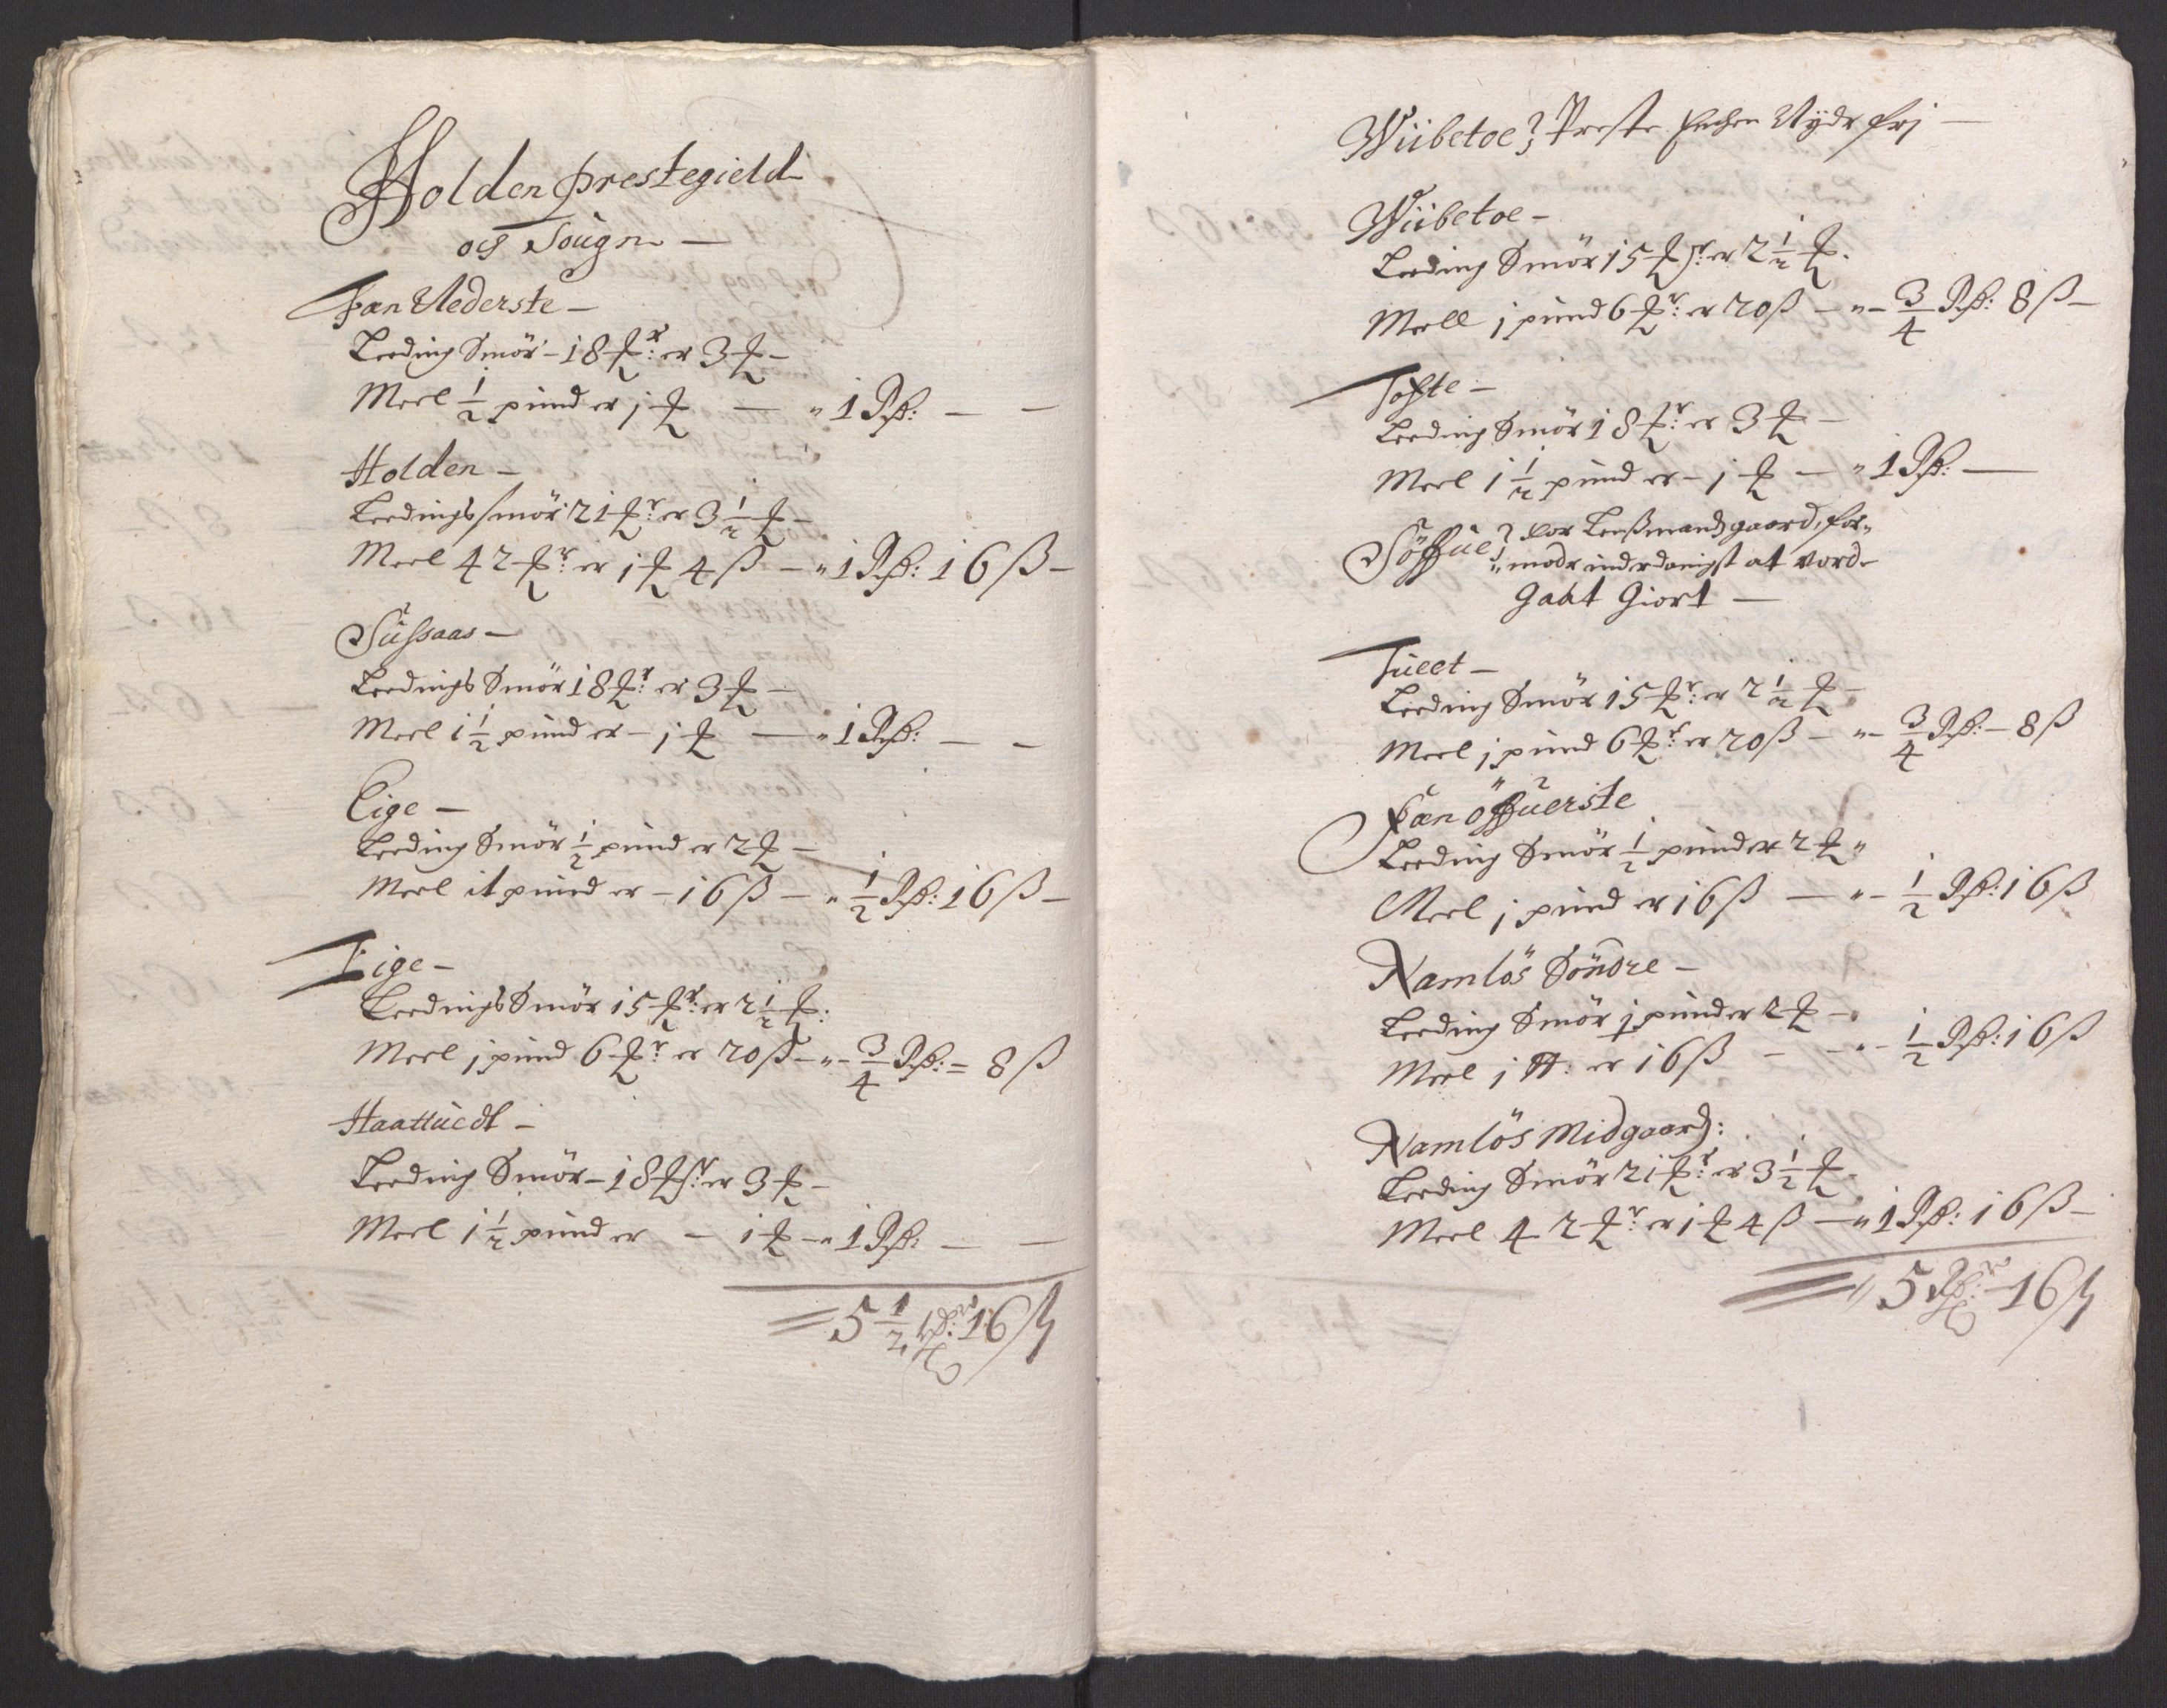 Holden prestegield
och Sougn —
Fæn Nederste —
Leeding Smör – 18 ℔r: er 3 ℔ –
Meel ½ pund er j ℔ — " 1 Rß: — —
Holden –
Leedings smör 21 ℔r: er 3 ½ ℔ –
Meel 42 ℔r: er j ℔ 4 ß – " 1 Rß: 16 ß –
Sussaas –
Leedings Smör 18 ℔r: er 3 ℔ –
Meel 1 ½ pund er – j ℔ — " 1 Rß: — —
Eige –
Leeding Smör ½ pund er 2 ℔ –
Meel it pund er – 16 ß – " ½ Rß: 16 ß –
Eige –
Leedings Smör 15 ℔r: er 2 ½ ℔:
Meel j pund 6 ℔r: er 20 ß – " – ¾ Rß: = 8 ß
Haattuedt –
Leeding Smör – 18 ℔r: er 3 ℔ –
Meel 1 ½ pund er – 1 ℔ – " 1 Rß: — —
= 5 ½ Rß: 16 ß
Wiibetoe Preste Enchen Nyder frj —
Wiibetoe –
Leeding Smör 15 ℔r: er 2 ½ ℔.
Meell j pund 6 ℔r: er 20 ß – " – ¾ Rß: 8 ß –
Tofte –
Leeding Smör 18 ℔r: er 3 ℔ –
Meel 1 ½ pund er – j ℔ — " 1 Rß: —
Söffue for Lenßmandz gaard, for„
„mode underdanigst at vorde
Gaat Giort —
Tueet –
Leeding Smör 15 ℔r: er 2 ½ ℔ –
Meel j pund 6 ℔r: er 20 ß – " – ¾ Rß: – 8 ß
Fæn öffuerste
Leeding Smör ½ pund er 2 ℔ "
Meel j pund er 16 ß — " – ½ Rß: 16 ß
Namlös Söndre –
Leeding Smör ½ pund er 2 ℔ –
Meel j ℔: er 16 ß – – " – ½ Rß: 16 ß
Namlös Midgaard:
Leeding Smör 21 ℔r: er 3 ½ ℔.
Meel 42 ℔r: er 1 ℔ 4 ß — " 1 Rß: 16 ß –
" 5 Rß: – 16 ß